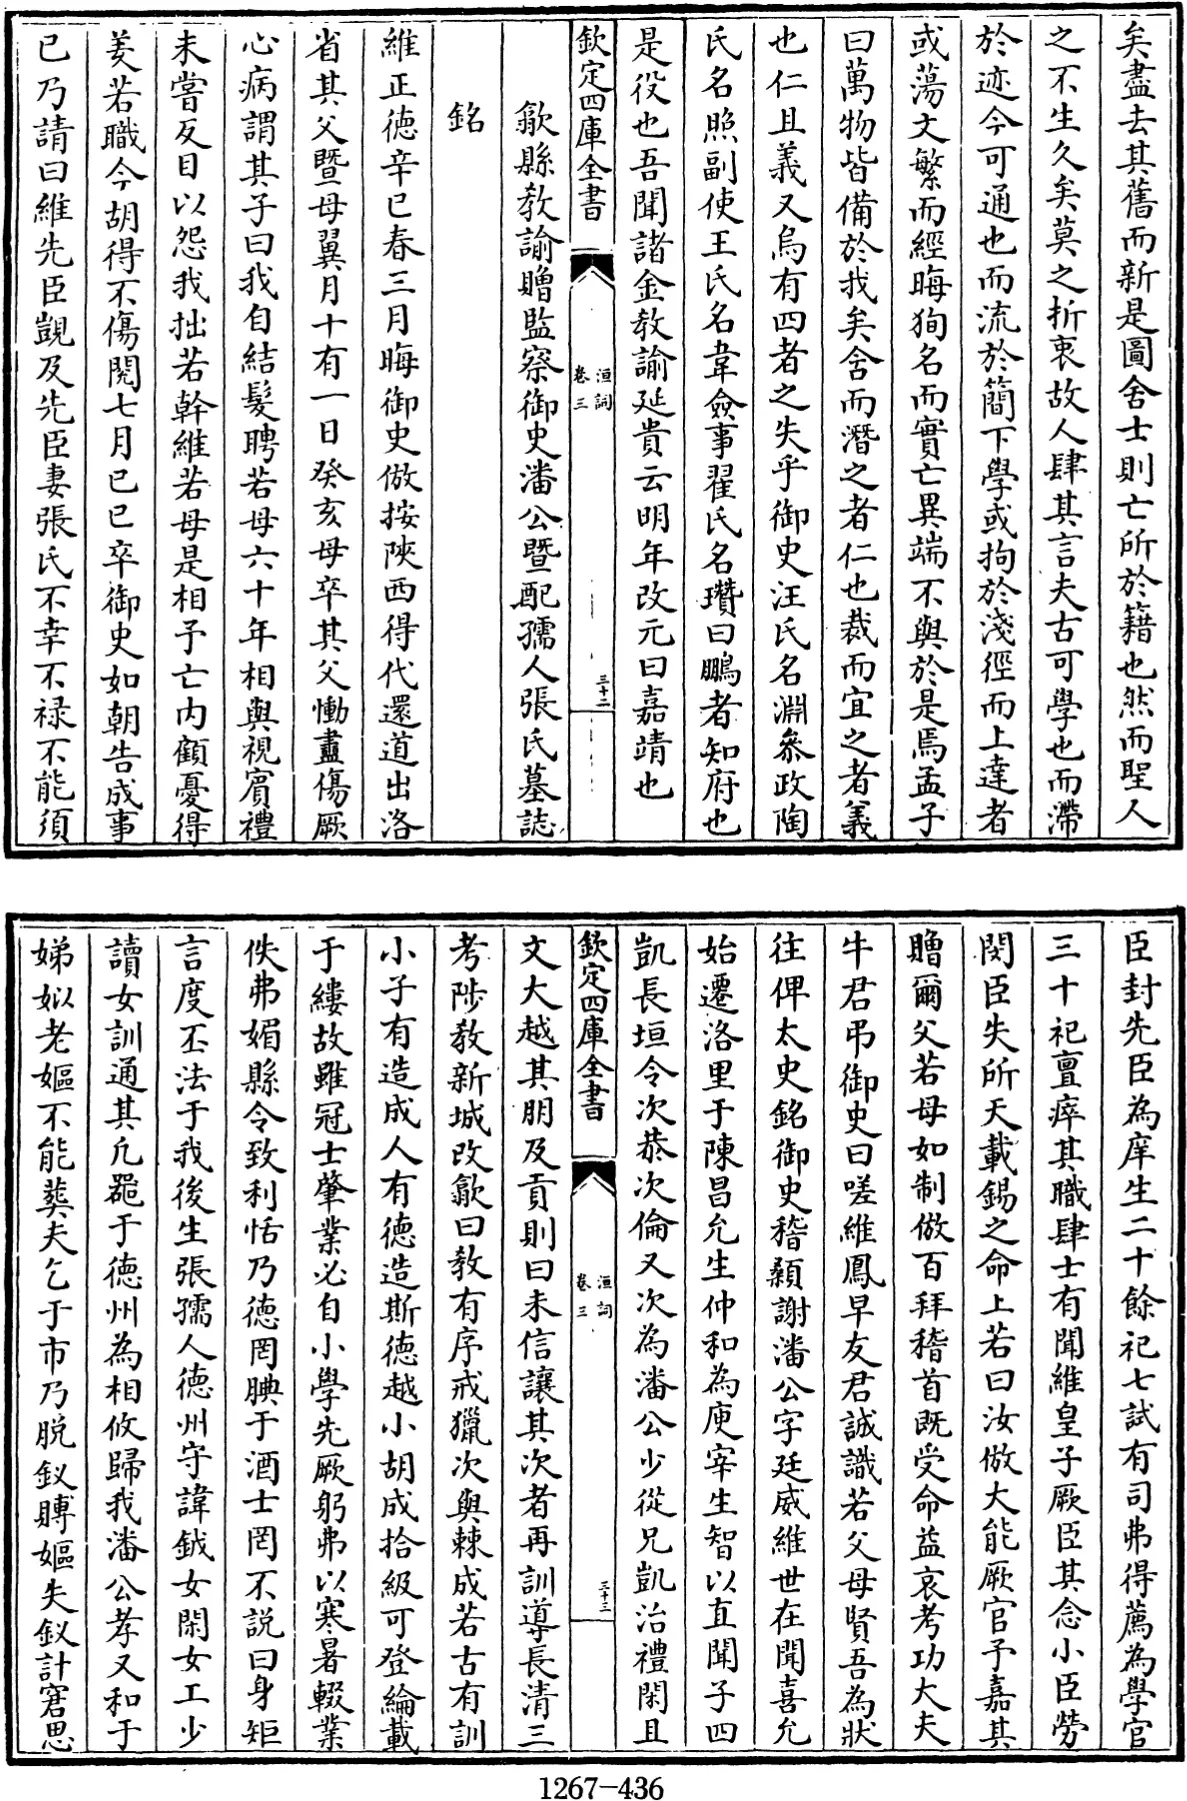 矣盡去其舊而新是圖舍士則亡所於籍也然而聖人
之不生久矣莫之折衷故人肆其言夫古可學也而滯
於迹今可通也而流於簡下學或拘於淺徑而上達者
或蕩文繁而經晦狥名而實亡異端不與於是焉孟子
曰萬物皆備於我矣舍而潛之者仁也裁而宜之者義
也仁且義又烏有四者之失乎御史汪氏名淵叅政陶
氏名照副使王氏名韋僉事翟氏名瓚曰鵬者知府也
是役也吾聞諸金教諭延貴云明年改元曰嘉靖也
欽定四庫全書
洹詞
卷三
三十二
歙縣教諭贈監察御史潘公暨配孺人張氏墓誌
銘
維正德辛巳春三月晦御史倣按陝西得代還道出洛
省其父暨母翼月十有一日癸亥母卒其父慟盡傷厥
心病謂其子曰我自結髮聘若母六十年相與視賓禮
未嘗反目以怨我拙若幹維若母是相予亡内顧憂得
羙若職今胡得不傷閱七月己巳卒御史如朝告成事
已乃請曰維先臣覬及先臣妻張氏不幸不禄不能須
臣封先臣為庠生二十餘祀七試有司弗得薦為學官
三十祀亶瘁其職肆士有聞維皇子厥臣其念小臣勞
閔臣失所天載錫之命上若曰汝倣大能厥官予嘉其
贈爾父若母如制倣百拜稽首既受命益哀考功大夫
牛君弔御史曰嗟維鳳早友君誠識若父母賢吾為狀
往俾太史銘御史稽顙謝潘公字廷威維世在聞喜允
始遷洛里于陳昌允生仲和為庾宰生智以直聞子四
凱長垣令次恭次倫又次為潘公少從兄凱治禮閑且
欽定四庫全書
洹詞
卷三
三十三
文大越其朋及貢則曰未信讓其次者再訓導長清三
考陟教新城改歙曰教有序戒獵次與棘成若古有訓
小子有造成人有德造斯德越小胡成拾級可登綸載
于縷故雖冠士肇業必自小學先厥躬弗以寒暑輟業
佚弗媚縣令致利恬乃德罔腆于酒士罔不說曰身矩
言度丕法于我後生張孺人德州守諱鉞女閑女工少
讀女訓通其凢嬎于德州為相攸歸我潘公孝又和于
娣姒老嫗不能葬夫乞于市乃脱釵賻嫗失釵計窘思
1267-436